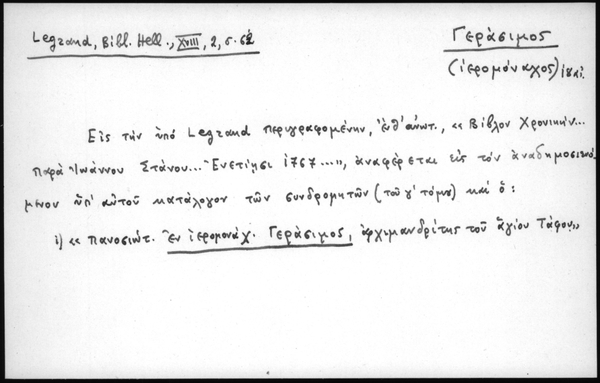 Legrand, Bibl. Hell., XVIII, 2, σ. 62
Γεράσιμος
(ἱερομόναχος) ιηʹ αἰ.
Εἰς τὴν ὑπὸ Legrand περιγραφομένην, ἔνθ' ἀνωτ., «Βίβλον Χρονικὴν...
παρὰ Ἰωάννου Στάνου... Ἐνετίησι 1767...», ἀναφέρεται εἰς τὸν ἀναδημοσιευό-
μενον ὑπ' αὐτοῦ κατάλογον τῶν συνδρομητῶν (τοῦ γ' τόμου) καὶ ὁ:
1) «πανοσιώτ. ἐν ἱερομονάχ. Γεράσιμος, ἀρχιμανδρίτης τοῦ ἁγίου Τάφου»